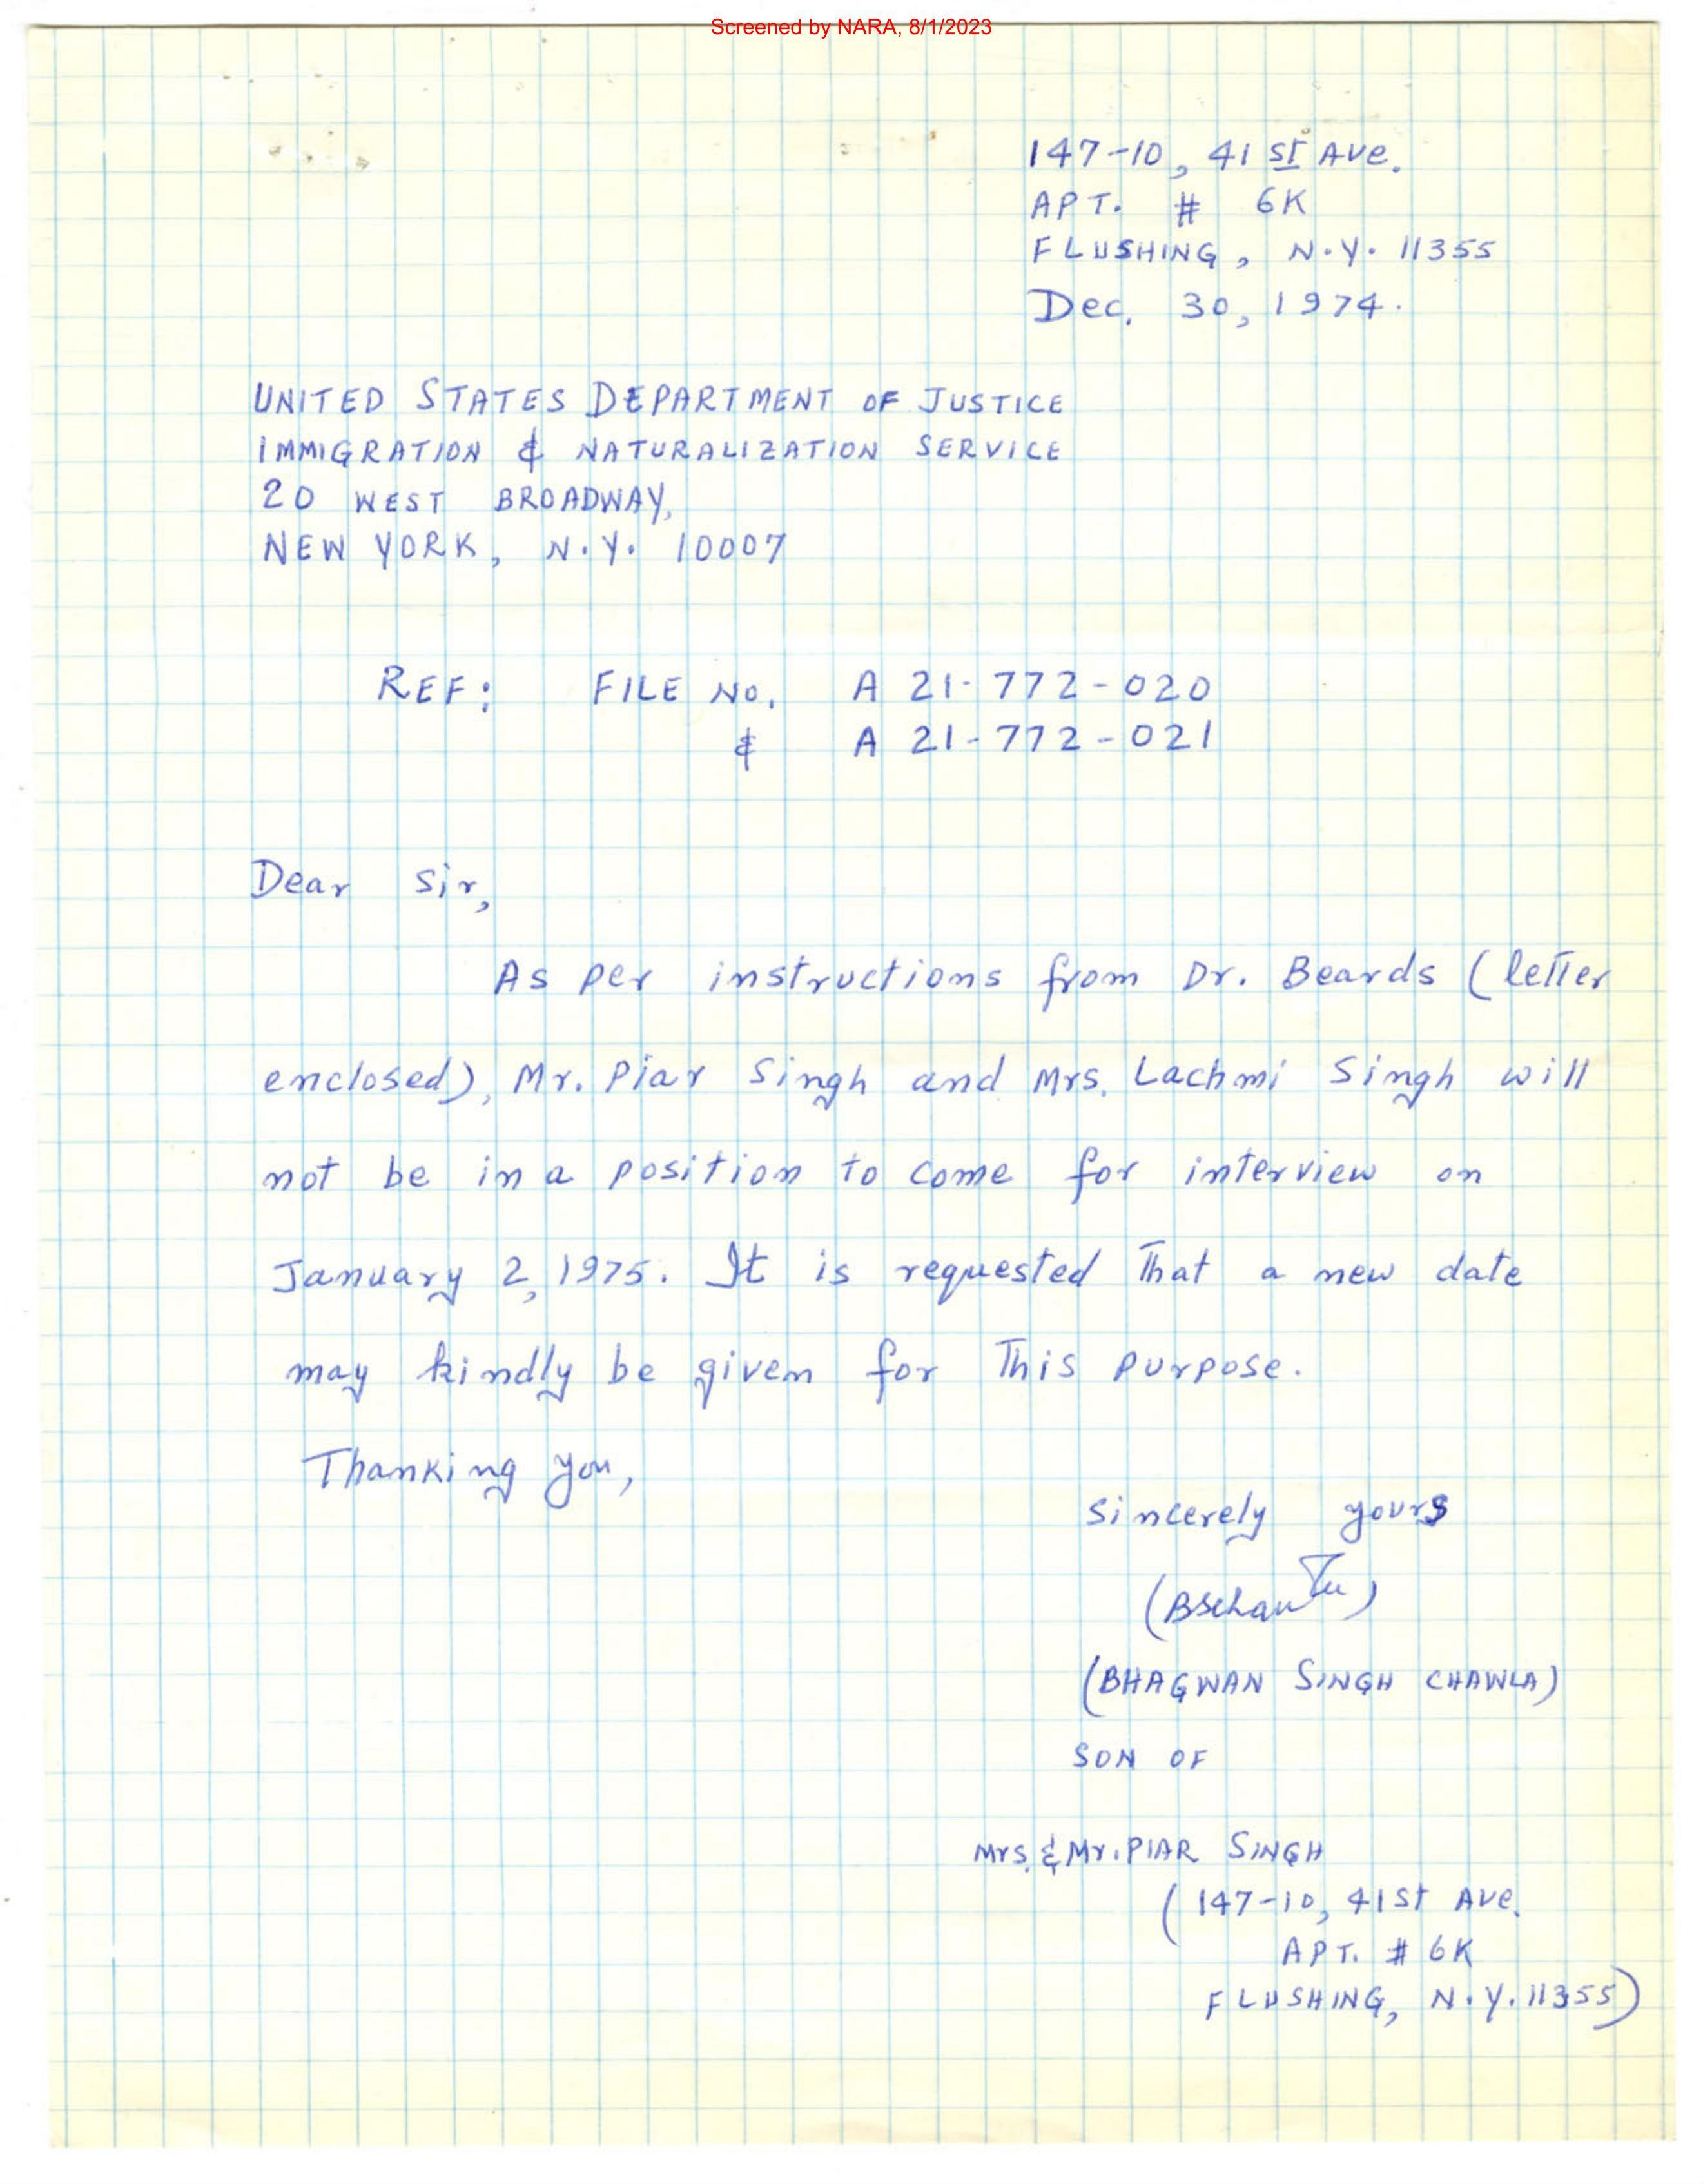 Screened by NARA, 8/1/2023
147-10, 41 ST Ave.
APT. # 6K
FLUSHING, N.Y. 11355
Dec. 30, 1974.
UNITED STATES DEPARTMENT OF JUSTICE
IMMIGRATION & NATURALIZATION SERVICE
20 WEST BROADWAY,
NEW YORK, N.Y. 10007
REF: FILE NO. A 21-772-020
& A 21-772-021
Dear Sir,
As per instructions from Dr. Beards (letter
enclosed), Mr. Piar Singh and Mrs. Lachmi Singh will
not be in a position to come for interview on
January 2, 1975. It is requested That a new date
may kindly be given for This purpose.
Thanking you,
Sincerely yours
(BHAGWAN SINGH CHAWLA)
SON OF
Mrs. & Mr. PIAR SINGH
(147-10, 41st Ave.
APT. # 6K
FLUSHING, N.Y. 11355)